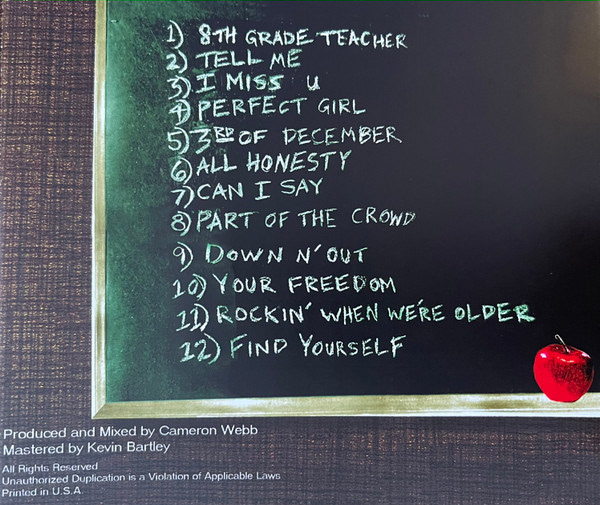 1) 8TH GRADE TEACHER
2) TELL ME
3) I MISS U
4) PERFECT GIRL
5) 3RD OF DECEMBER
6) ALL HONESTY
7) CAN I SAY
8) PART OF THE CROWD
9) DOWN N' OUT
10) YOUR FREEDOM
11) ROCKIN' WHEN WE'RE OLDER
12) FIND YOURSELF
Produced and Mixed by Cameron Webb
Mastered by Kevin Bartley
All Rights Reserved
Unauthorized Duplication is a Violation of Applicable Laws
Printed in U.S.A.